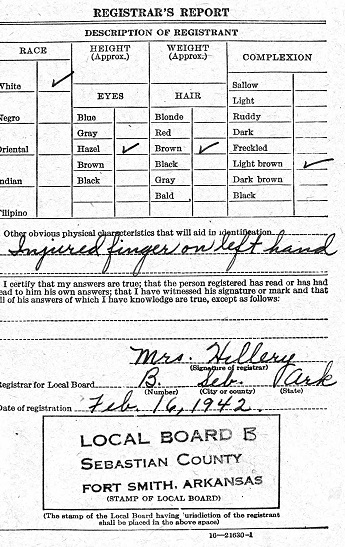 REGISTRAR'S REPORT
DESCRIPTION OF REGISTRANT
RACE
HEIGHT (Approx.)
WEIGHT (Approx.)
COMPLEXION
White ✓
Negro
Oriental
Indian
Filipino
EYES
Blue
Gray
Hazel ✓
Brown
Black
HAIR
Blonde
Red
Brown ✓
Black
Gray
Bald
Sallow
Light
Ruddy
Dark
Freckled
Light brown ✓
Dark brown
Black
Other obvious physical characteristics that will aid in identification
Injured finger on left hand
I certify that my answers are true; that the person registered has read or has had
read to him his own answers; that I have witnessed his signature or mark and that
all of his answers of which I have knowledge are true, except as follows:
Mrs. Hillery
(Signature of registrar)
Registrar for Local Board B. Seb. Ark
(Number) (City or county) (State)
Date of registration Feb. 16, 1942.
LOCAL BOARD B
SEBASTIAN COUNTY
FORT SMITH, ARKANSAS
(STAMP OF LOCAL BOARD)
(The stamp of the Local Board having jurisdiction of the registrant
shall be placed in the above space)
16—21630-1